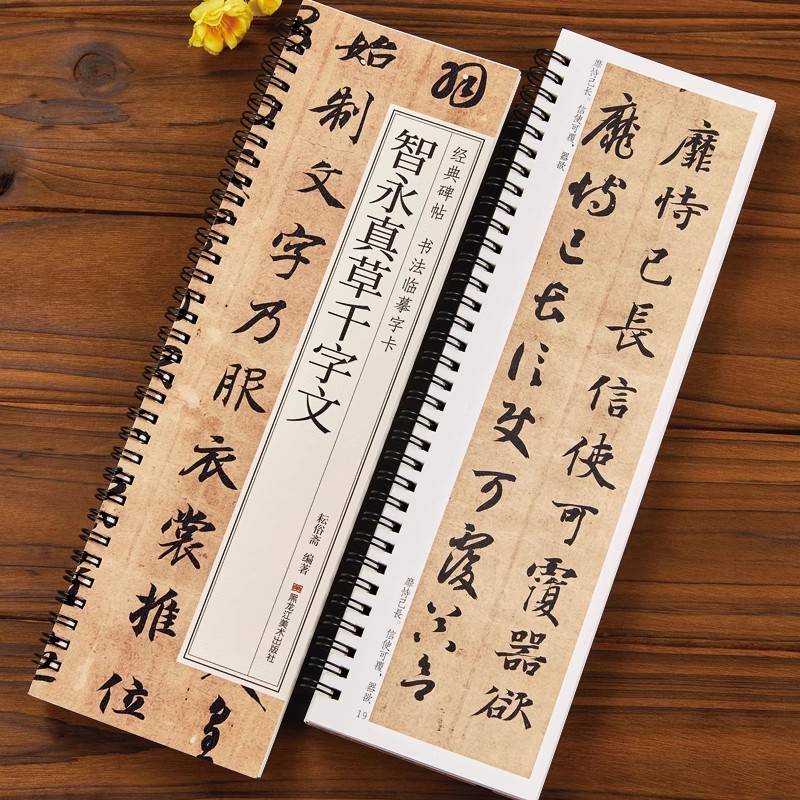 始制文字乃服衣裳推位
经典碑帖 书法临摹字卡
智永真草千字文
耘俗斋 编著
黑龙江美术出版社
靡恃己長信使可覆器欲
靡恃己長信使可覆器欲
靡恃己长。信使可覆，器欲
靡恃己長。信使可覆，器欲
19